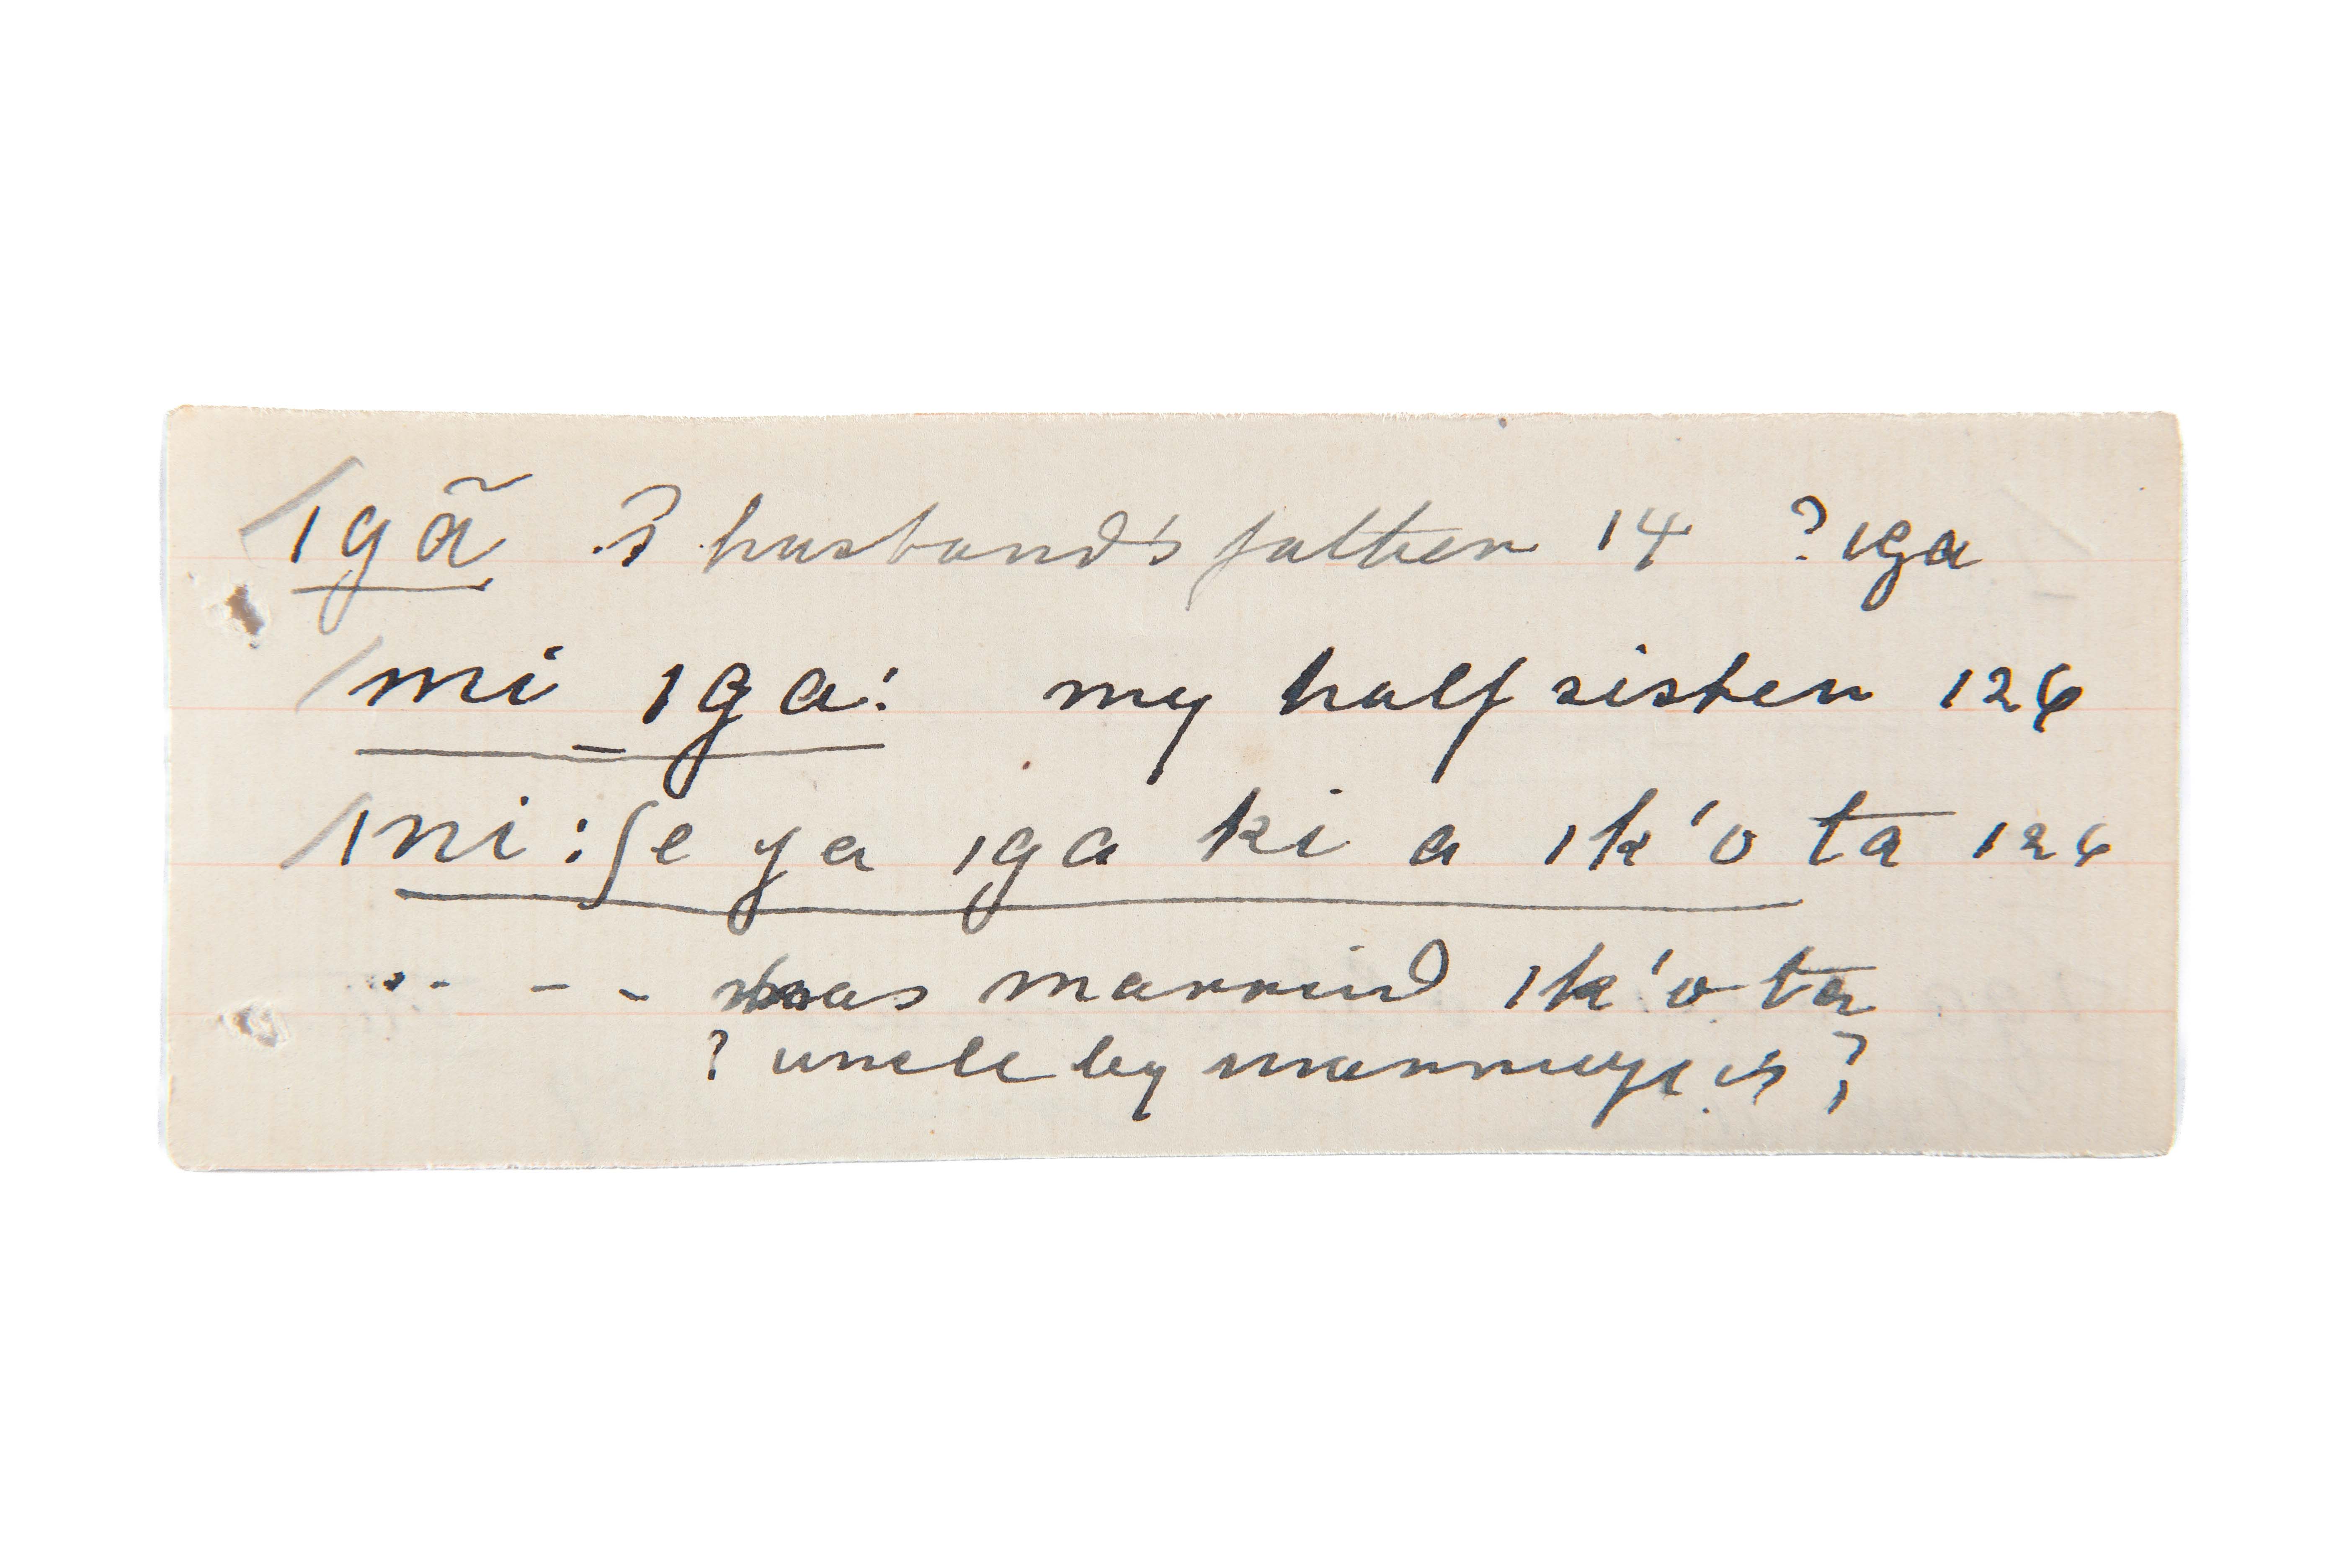 ıgã ? husband's father 14 ? ıga
mi ıga: my half sister 126
ıni:ʃe ya ıga ki a ık'o ta 126
.. - - was married ık'o ta
? uncle by marriage is ?